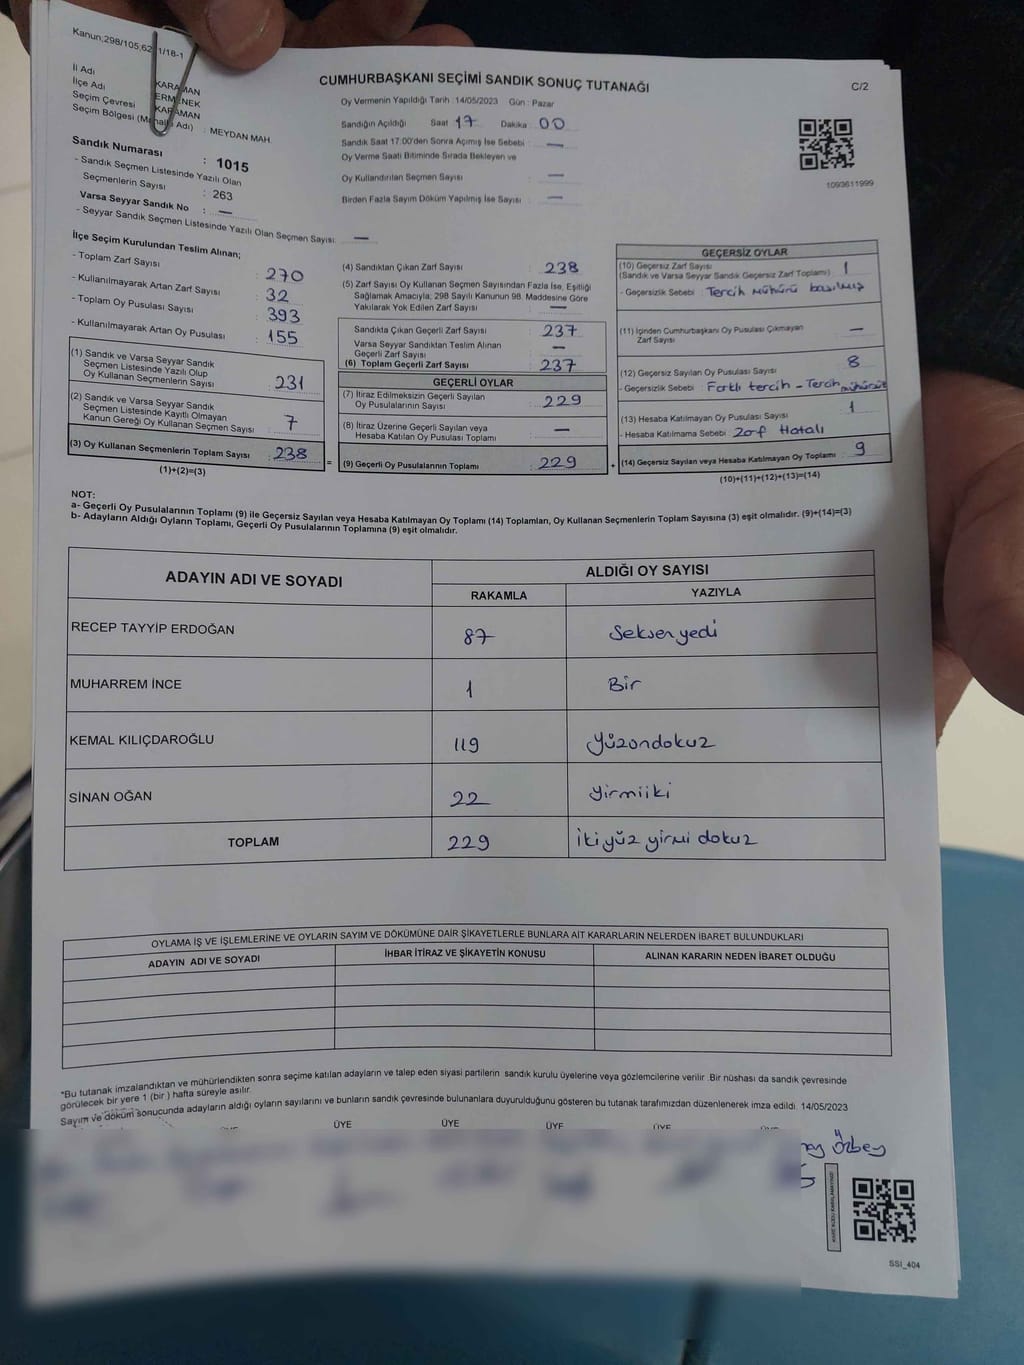 Kanun;298/105;62 1/18-1
CUMHURBAŞKANI SEÇİMİ SANDIK SONUÇ TUTANAĞI
C/2
İl Adı KARAMAN
İlçe Adı ERMENEK
Seçim Çevresi KARAMAN
Seçim Bölgesi (Mahalle Adı) : MEYDAN MAH.
Sandık Numarası : 1015
- Sandık Seçmen Listesinde Yazılı Olan
Seçmenlerin Sayısı : 263
Varsa Seyyar Sandık No : —
- Seyyar Sandık Seçmen Listesinde Yazılı Olan Seçmen Sayısı: —
Oy Vermenin Yapıldığı Tarih :14/05/2023 Gün : Pazar
Sandığın Açıldığı Saat 17 Dakika 00
Sandık Saat 17.00'den Sonra Açımış İse Sebebi : —
Oy Verme Saati Bitiminde Sırada Bekleyen ve
Oy Kullandırılan Seçmen Sayısı : —
Birden Fazla Sayım Döküm Yapılmış İse Sayısı : —
1093611999
İlçe Seçim Kurulundan Teslim Alınan;
- Toplam Zarf Sayısı : 270
- Kullanılmayarak Artan Zarf Sayısı : 32
- Toplam Oy Pusulası Sayısı : 393
- Kullanılmayarak Artan Oy Pusulası : 155
(1) Sandık ve Varsa Seyyar Sandık
Seçmen Listesinde Yazılı Olup
Oy Kullanan Seçmenlerin Sayısı : 231
(2) Sandık ve Varsa Seyyar Sandık
Seçmen Listesinde Kayıtlı Olmayan
Kanun Gereği Oy Kullanan Seçmen Sayısı : 7
(3) Oy Kullanan Seçmenlerin Toplam Sayısı : 238
(1)+(2)=(3)
(4) Sandıktan Çıkan Zarf Sayısı : 238
(5) Zarf Sayısı Oy Kullanan Seçmen Sayısından Fazla İse, Eşitliği
Sağlamak Amacıyla; 298 Sayılı Kanunun 98. Maddesine Göre
Yakılarak Yok Edilen Zarf Sayısı : —
Sandıkta Çıkan Geçerli Zarf Sayısı : 237
Varsa Seyyar Sandıktan Teslim Alınan
Geçerli Zarf Sayısı : —
(6) Toplam Geçerli Zarf Sayısı : 237
GEÇERLİ OYLAR
(7) İtiraz Edilmeksizin Geçerli Sayılan
Oy Pusulalarının Sayısı : 229
(8) İtiraz Üzerine Geçerli Sayılan veya
Hesaba Katılan Oy Pusulası Toplamı : —
= (9) Geçerli Oy Pusulalarının Toplamı : 229 +
GEÇERSİZ OYLAR
(10) Geçersiz Zarf Sayısı
(Sandık ve Varsa Seyyar Sandık Geçersiz Zarf Toplamı) : 1
- Geçersizlik Sebebi : Tercih mühürü basılmış
(11) İçinden Cumhurbaşkanı Oy Pusulası Çıkmayan
Zarf Sayısı : —
(12) Geçersiz Sayılan Oy Pusulası Sayısı : 8
- Geçersizlik Sebebi : Farklı tercih - Tercih mühürsüz
(13) Hesaba Katılmayan Oy Pusulası Sayısı : 1
- Hesaba Katılmama Sebebi : Zarf Hatalı
(14) Geçersiz Sayılan veya Hesaba Katılmayan Oy Toplamı : 9
(10)+(11)+(12)+(13)=(14)
NOT:
a- Geçerli Oy Pusulalarının Toplamı (9) ile Geçersiz Sayılan veya Hesaba Katılmayan Oy Toplamı (14) Toplamları, Oy Kullanan Seçmenlerin Toplam Sayısına (3) eşit olmalıdır. (9)+(14)=(3)
b- Adayların Aldığı Oyların Toplamı, Geçerli Oy Pusulalarının Toplamına (9) eşit olmalıdır.
ADAYIN ADI VE SOYADI
ALDIĞI OY SAYISI
RAKAMLA YAZIYLA
RECEP TAYYİP ERDOĞAN 87 Seksenyedi
MUHARREM İNCE 1 Bir
KEMAL KILIÇDAROĞLU 119 Yüzondokuz
SİNAN OĞAN 22 Yirmiiki
TOPLAM 229 İkiyüz yirmi dokuz
OYLAMA İŞ VE İŞLEMLERİNE VE OYLARIN SAYIM VE DÖKÜMÜNE DAİR ŞİKAYETLERLE BUNLARA AİT KARARLARIN NELERDEN İBARET BULUNDUKLARI
ADAYIN ADI VE SOYADI İHBAR İTİRAZ VE ŞİKAYETİN KONUSU ALINAN KARARIN NEDEN İBARET OLDUĞU
*Bu tutanak imzalandıktan ve mühürlendikten sonra seçime katılan adayların ve talep eden siyasi partilerin sandık kurulu üyelerine veya gözlemcilerine verilir .Bir nüshası da sandık çevresinde
görülecek bir yere 1 (bir ) hafta süreyle asılır.
Sayım ve döküm sonucunda adayların aldığı oyların sayılarını ve bunların sandık çevresinde bulunanlara duyurulduğunu gösteren bu tutanak tarafımızdan düzenlenerek imza edildi. 14/05/2023
ÜYE ÜYE ÜYE ÜYE ÜYE
Özbey
SSI_404